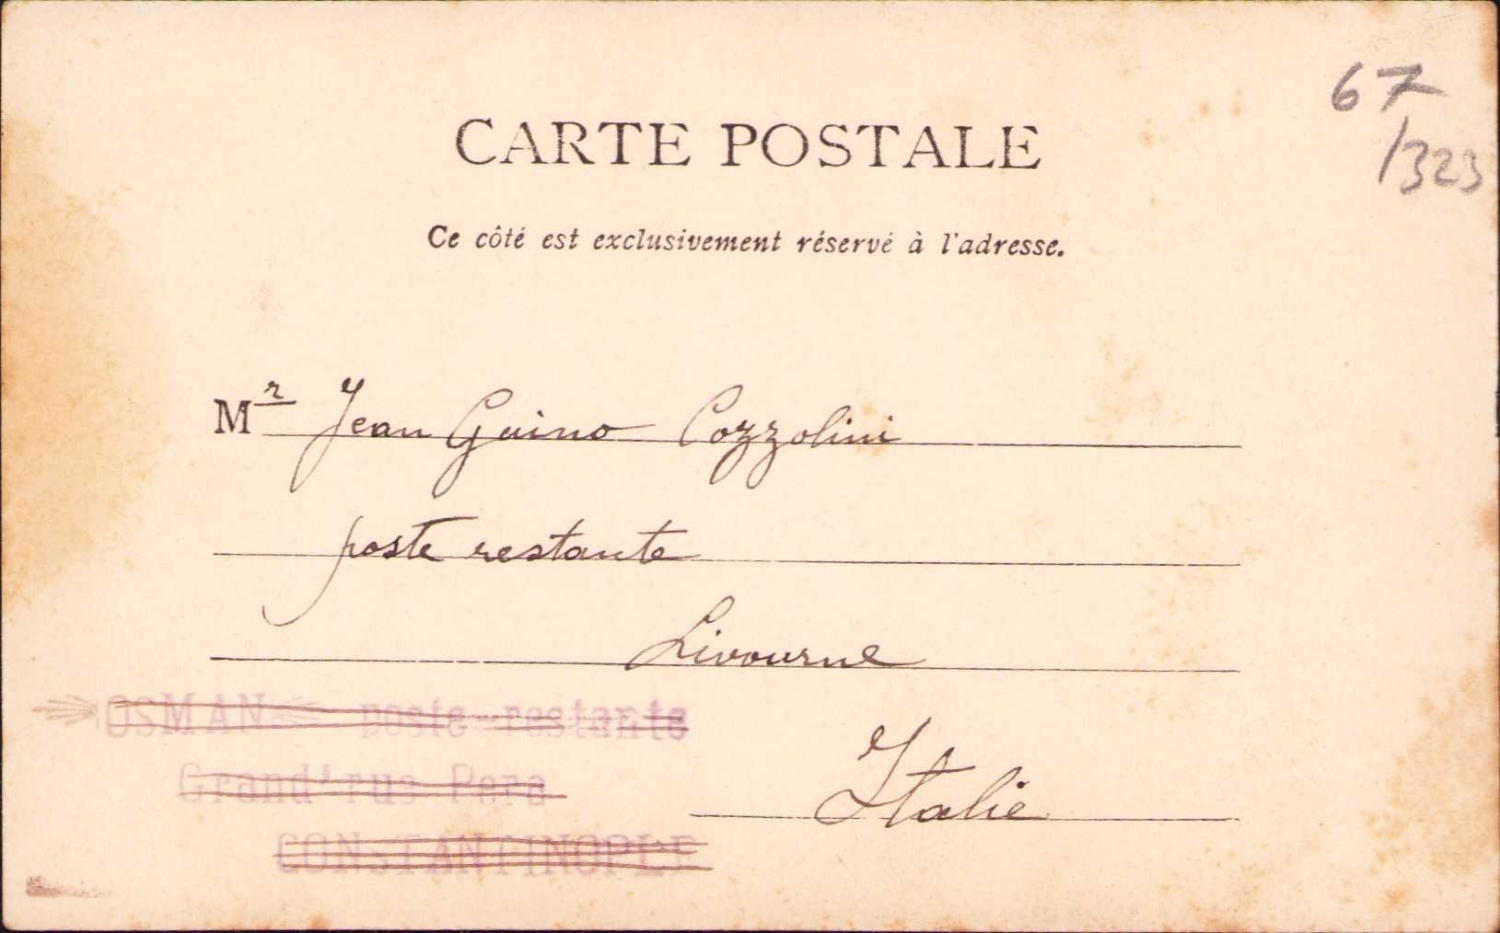 67
/323
CARTE POSTALE
Ce côté est exclusivement réservé à l'adresse.
Mr Jean Guino Cozzolini
poste restante
Livourne
Italie
OSMAN poste-restante
Grand'rue Pera
CONSTANTINOPLE